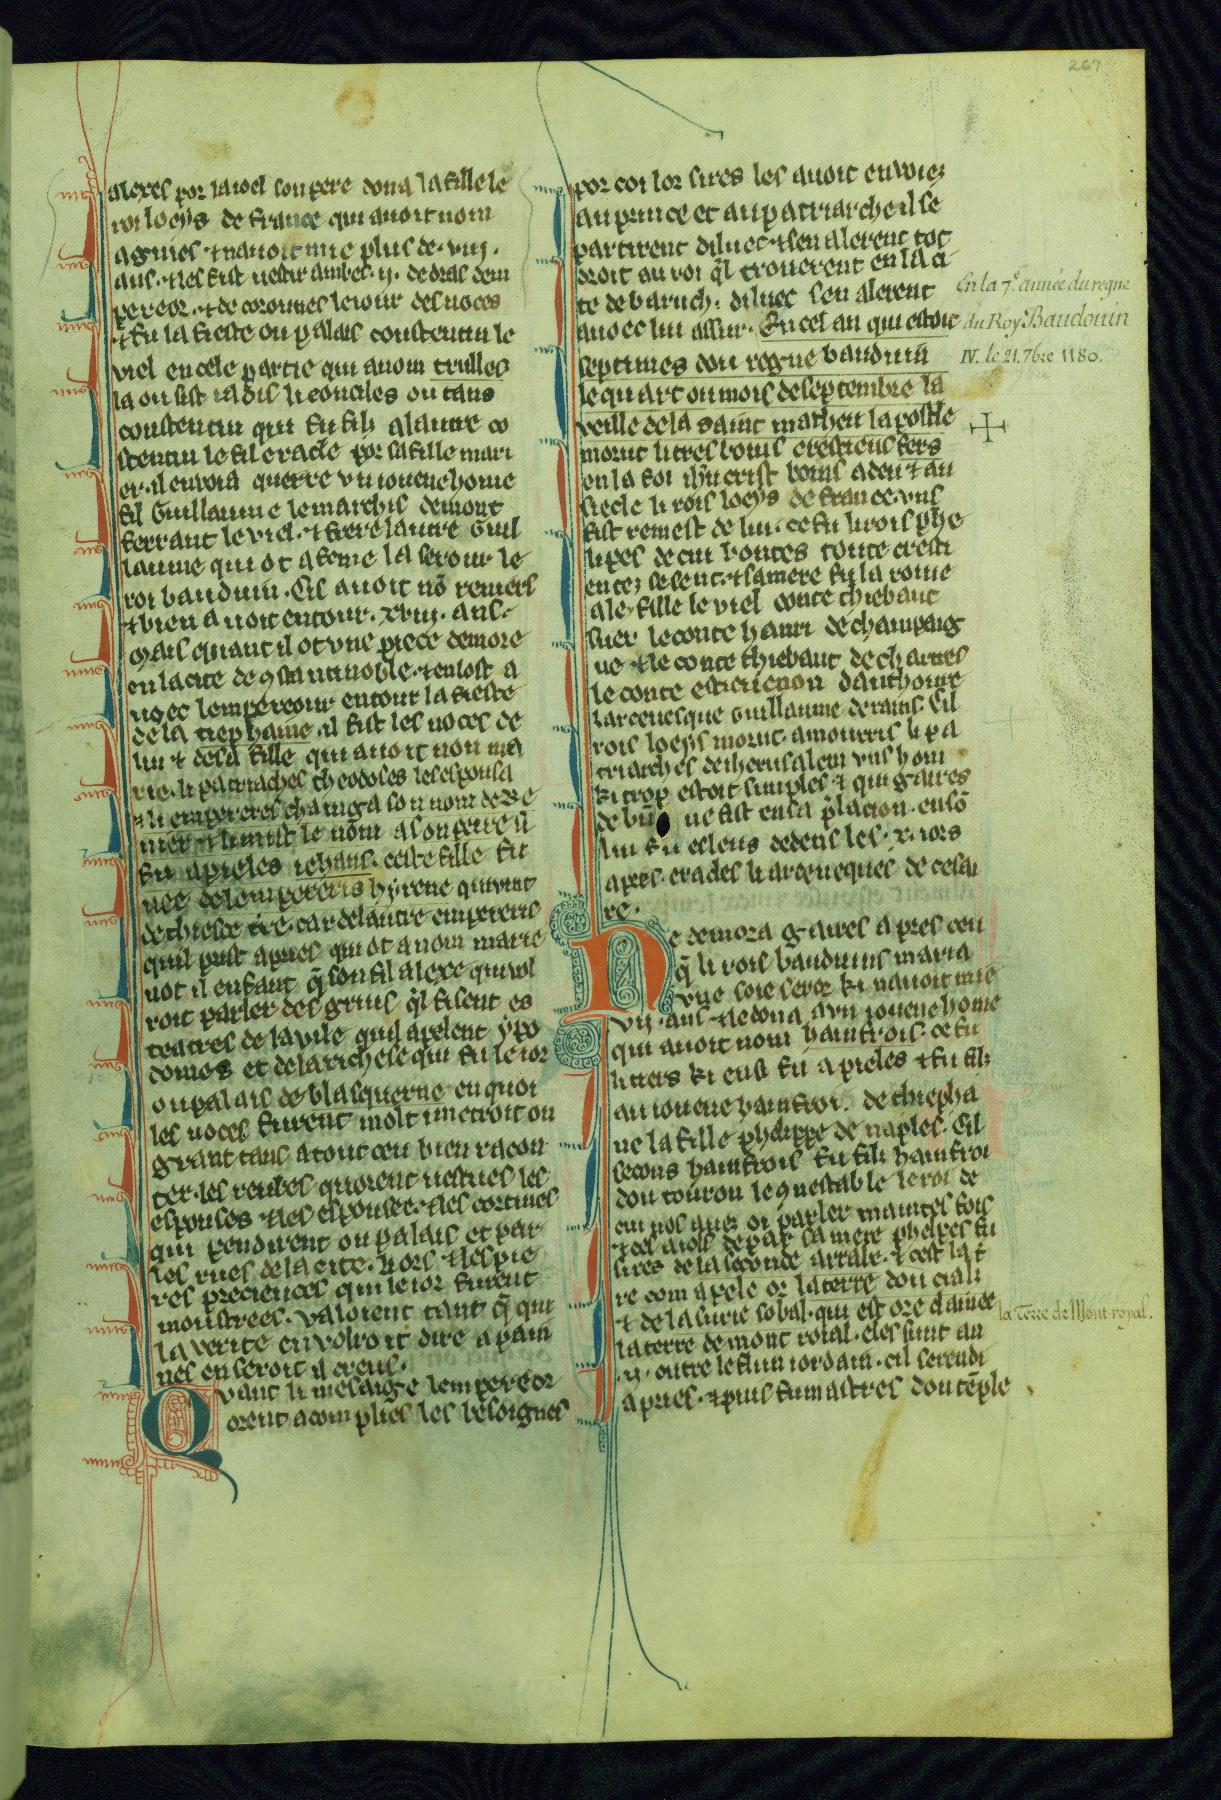 267
alexes por laioel son pere dona la fille le
roi loeys de france qui avoit nom
agnies ⁊ navoit mie plus de .viij.
ans. ⁊ les fist vestir ambes .ij. de dras dem
pereor. ⁊ de coronnes le iour des noces
⁊ fu la feste ou palais constentin le
viel en cele partie qui a nom trulles
la ou fist iadis li conciles ou tans
constentin qui fu fils a lautre co
stentin le fil eracle por sa fille mari
er. il envoia querre vn iouene home
fil Guillaume le marchis de mont
ferrant le viel. ⁊ frere lautre Guil
laume qui ot a feme la serour le
roi bauduin. Cil avoit nō reniers
⁊ bien avoit entour .xviij. ans.
mais quant il ot vne piece demore
en la cite de ꝯstantinoble. ⁊ en lost a
uoec lempereour entour la feste
de la tiephaine. il fist les noces de
lui ⁊ de sa fille qui avoit non ma
rie. li patriaches theodoses les espousa
⁊ li empereres chainga son nom de re
nier ⁊ li mist le nom a son pere ⁊
fu apieles iehans. ceste fille fu
nee de lempereris hyrene qui vint
de thiesce t̄re. car de lautre empereris
quil prist apries qui ot a nom marie
not il enfant q̄ son fil alexe qui vol
roit parler des grius q̄l fisent es
teatres de la vile quil apelent ypo
domes et de la richese qui fu le ior
ou palais de blasquerne en quoi
les noces furent molt i metroit on
grant tans a tout ceu bien racon
ter. les reubes quorent vestues les
espouses ⁊ les espousee. ⁊ les cortines
qui pendirent ou palais et par
les rues de la cite. li ors ⁊ les pie
res preciences qui le ior furent
monstrees. valoient tant q̄ qui
la verite en volroit dire a pain
nes en seroit il creus.
Quant li mesaige lempereor
orent acomplies les besoignes
por coi lor sires les avoit envoiez
au prince et au patriarche il se
partirent diluec. ⁊ sen alerent tot
droit au roi q̄l trouerent en la ci
te de baruth. diluec sen alerent
auoec lui assur. En cel an qui estoit
septimes dou regne bauduin
le quart ou mois de septembre la
veille de la saint matheu lapostle
morut li tres bons crestiens fers
en la foi ihū crist bons a deu ⁊ au
siecle li rois loeys de france. vns
fist remest de lui. ce fu li rois phe
lipes de cui bontes toute cresti
entez se sent. ⁊ sa mere fu la roine
ale. fille le viel conte thiebaut
suer le conte hanri de champaig
ne ⁊ le conte thiebaut de chartres
le conte estieuenon dauthoirre
larceuesque Guillaume de rains. Cil
rois loeys morut. amourris li pa
triarches de iherusalem vns hom
ki trop estoit simples ⁊ qui gaires
de bn̄ ne fist en sa p̄lacion. en sō
liu fu eslens dedens les .x. iors
apres. eracles li arceuequec de cesai
re.
Ne demora gaires apres ceu
q̄ li rois bauduins maria
vne soie seror ki navoit mie
vij. ans ⁊ le dona a vn iouene home
qui avoit nom hainfrois. ce fu
li tiers ki ensi fu apieles ⁊ fu filz
au iouene hainfroi. de thiepha
ne la fille phelippe de naples. Cil
secons hainfrois fu filz hainfroi
dou touron le ꝯnestable le roi de
cui vos auez oi parler maintes fois
⁊ cel aiols de par sa mere phelipes fu
sires de la seconde arrabe. ⁊ cest la t
re com apele or la terre dou crak
⁊ de la surie sobal. qui est ore clamee
la terre de mont roial. eles sunt an
.ij. outre le flun iordain. cil se rendi
apries. ⁊ puis fu maistres dou tēple
En la 7.e année du regne
du Roy Baudouin
IV. le 21. 7bre 1180.
la Terre de Mont-royal.